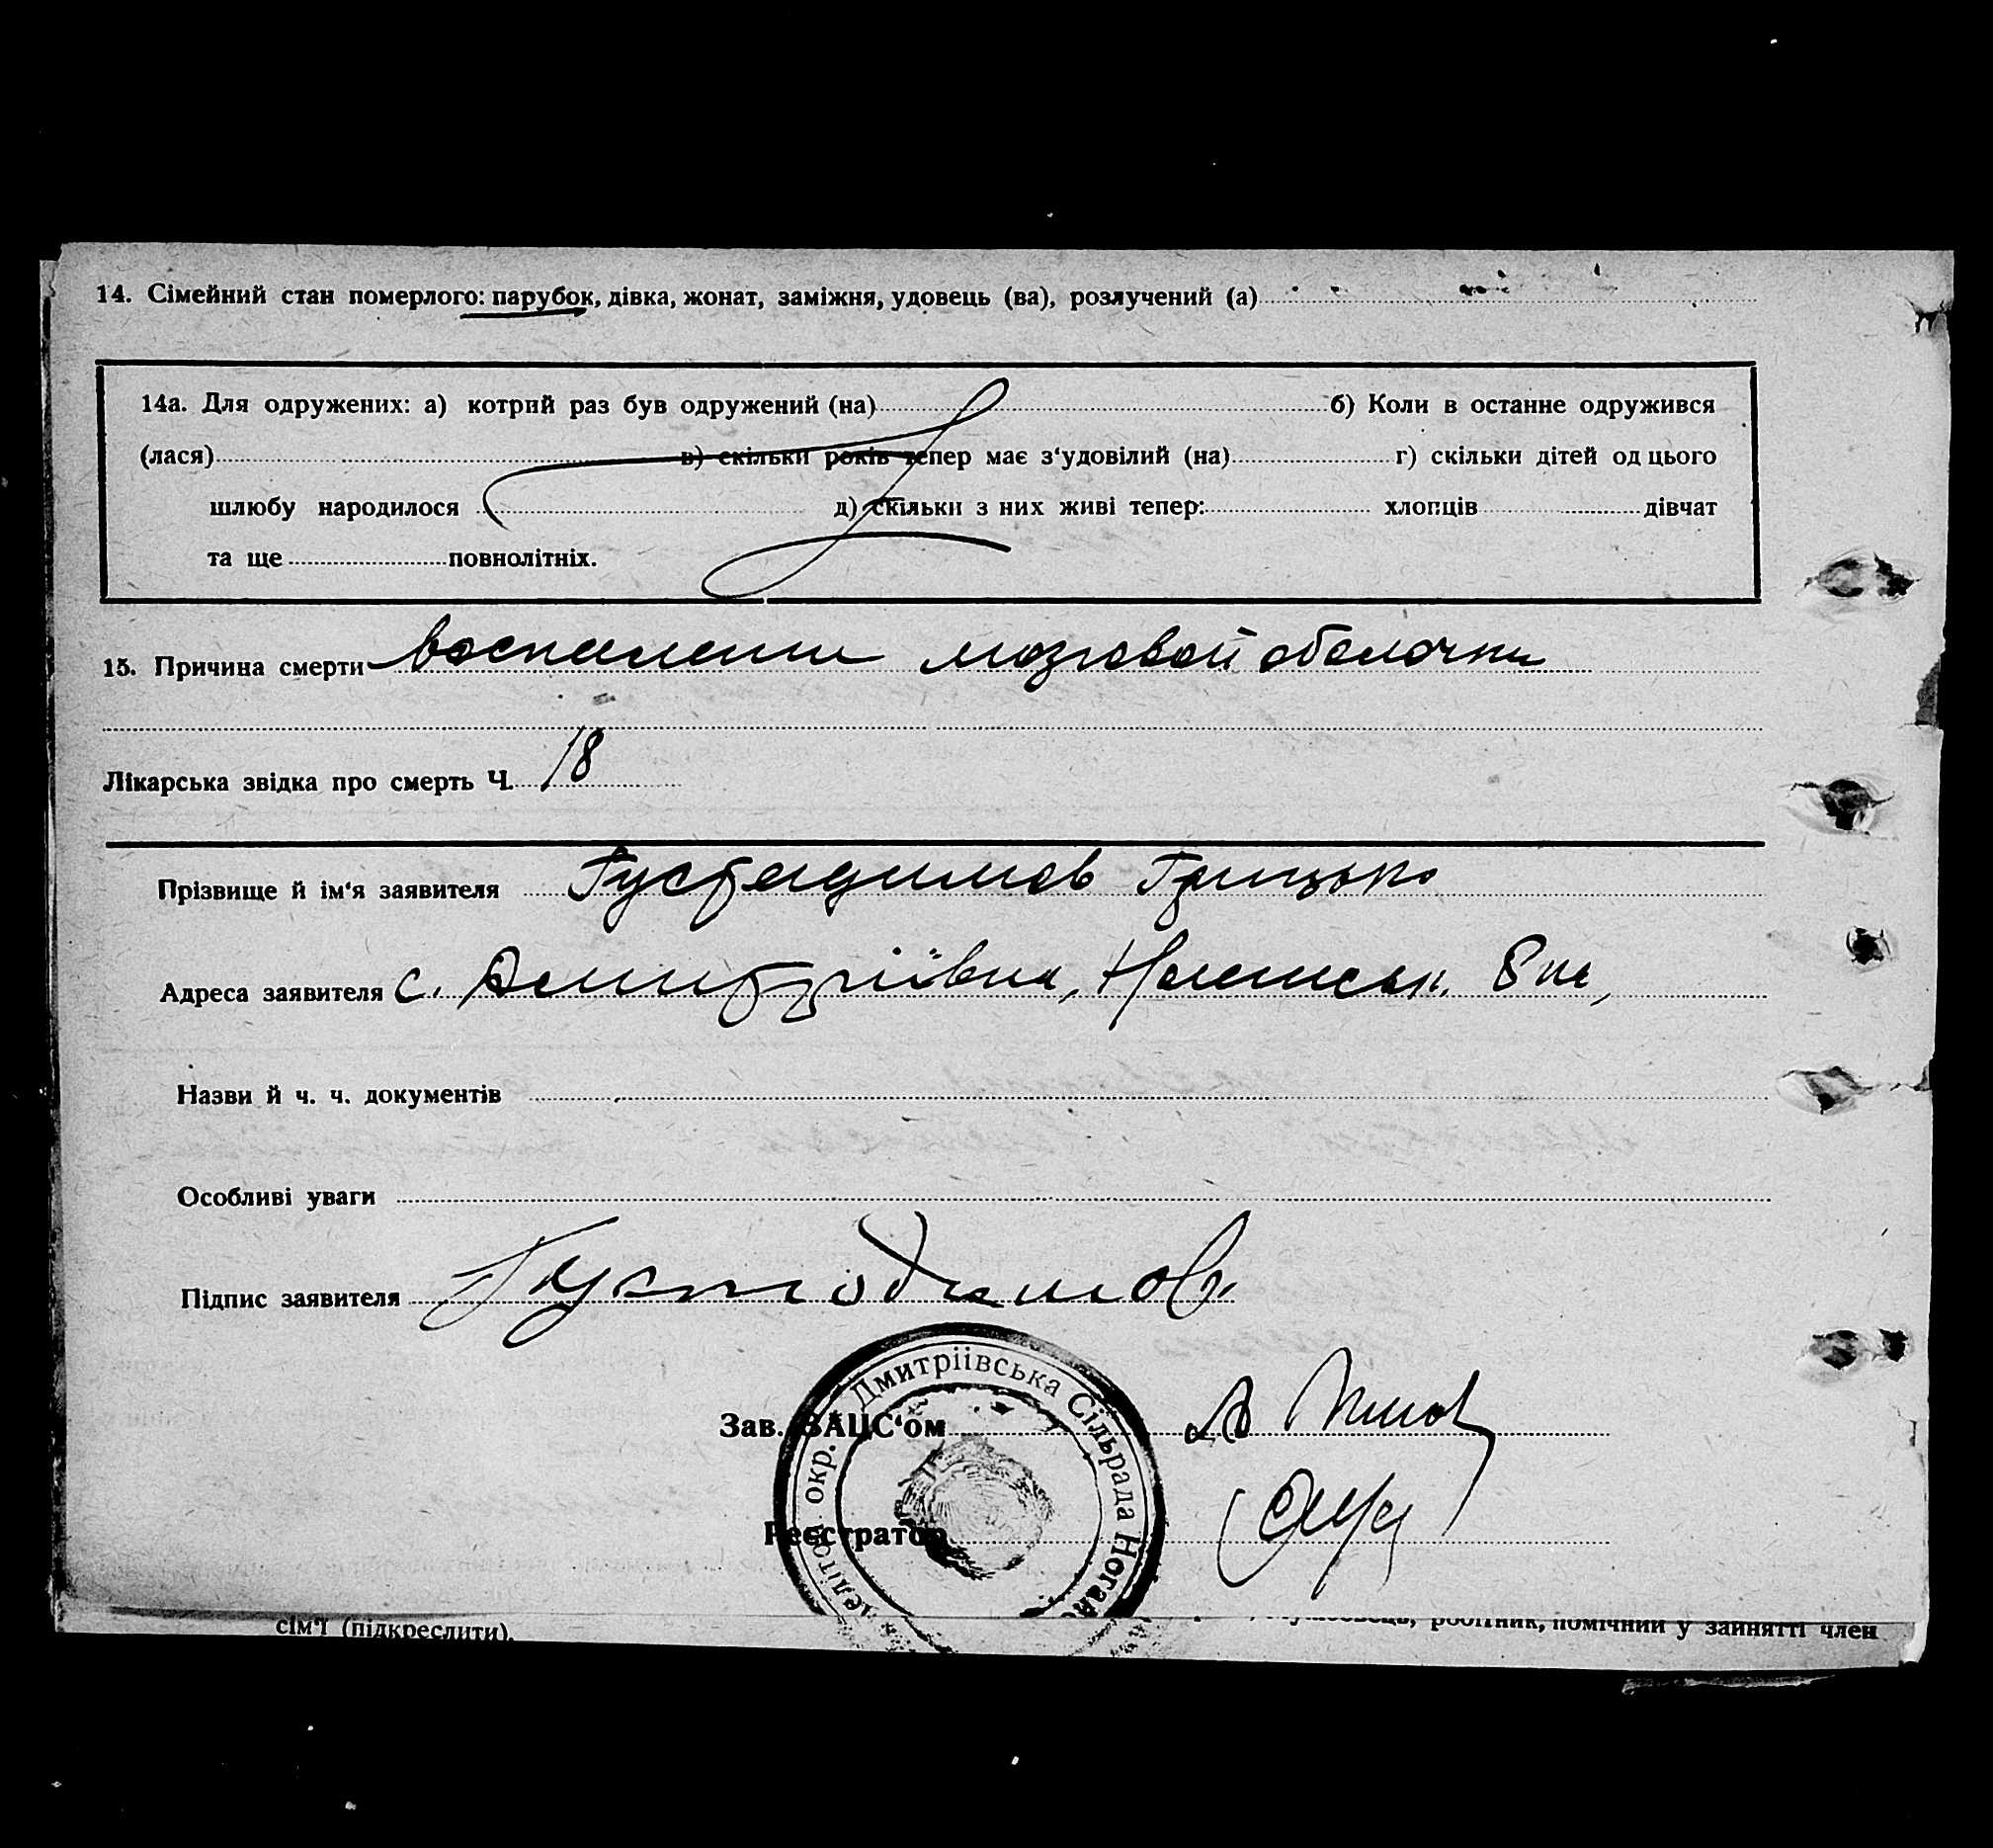 14. Сімейний стан померлого: парубок, дівка, жонат, заміжня, удовець (ва), розлучений (а)
14а. Для одружених: а) котрий раз був одружений (на) б) Коли в останнє одружився
(лася) в) скільки років тепер має з‘удовілий (на) г) скільки дітей од цього
шлюбу народилося д) скільки з них живі тепер: хлопців дівчат
та ще повнолітніх.
15. Причина смерти воспаление мозговой оболочки
Лікарська звідка про смерть Ч. 18
Прізвище й ім‘я заявителя Грицько
Адреса заявителя с. Дмитріївка,
Назви й ч. ч. документів
Особливі уваги
Підпис заявителя
Зав. ЗАЦС‘ом
Реєстратор
окр. * Дмитріївська Сільрада Ногайс
сім‘ї (підкреслити).
робітник, помічний у занятті член